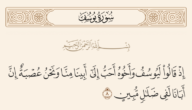 سُورَةُ يُوسُفَ
بِسْمِ اللَّهِ الرَّحْمَٰنِ الرَّحِيمِ
إِذْ قَالُوا لَيُوسُفُ وَأَخُوهُ أَحَبُّ إِلَىٰ أَبِينَا مِنَّا وَنَحْنُ عُصْبَةٌ إِنَّ
أَبَانَا لَفِي ضَلَالٍ مُّبِينٍ ٨